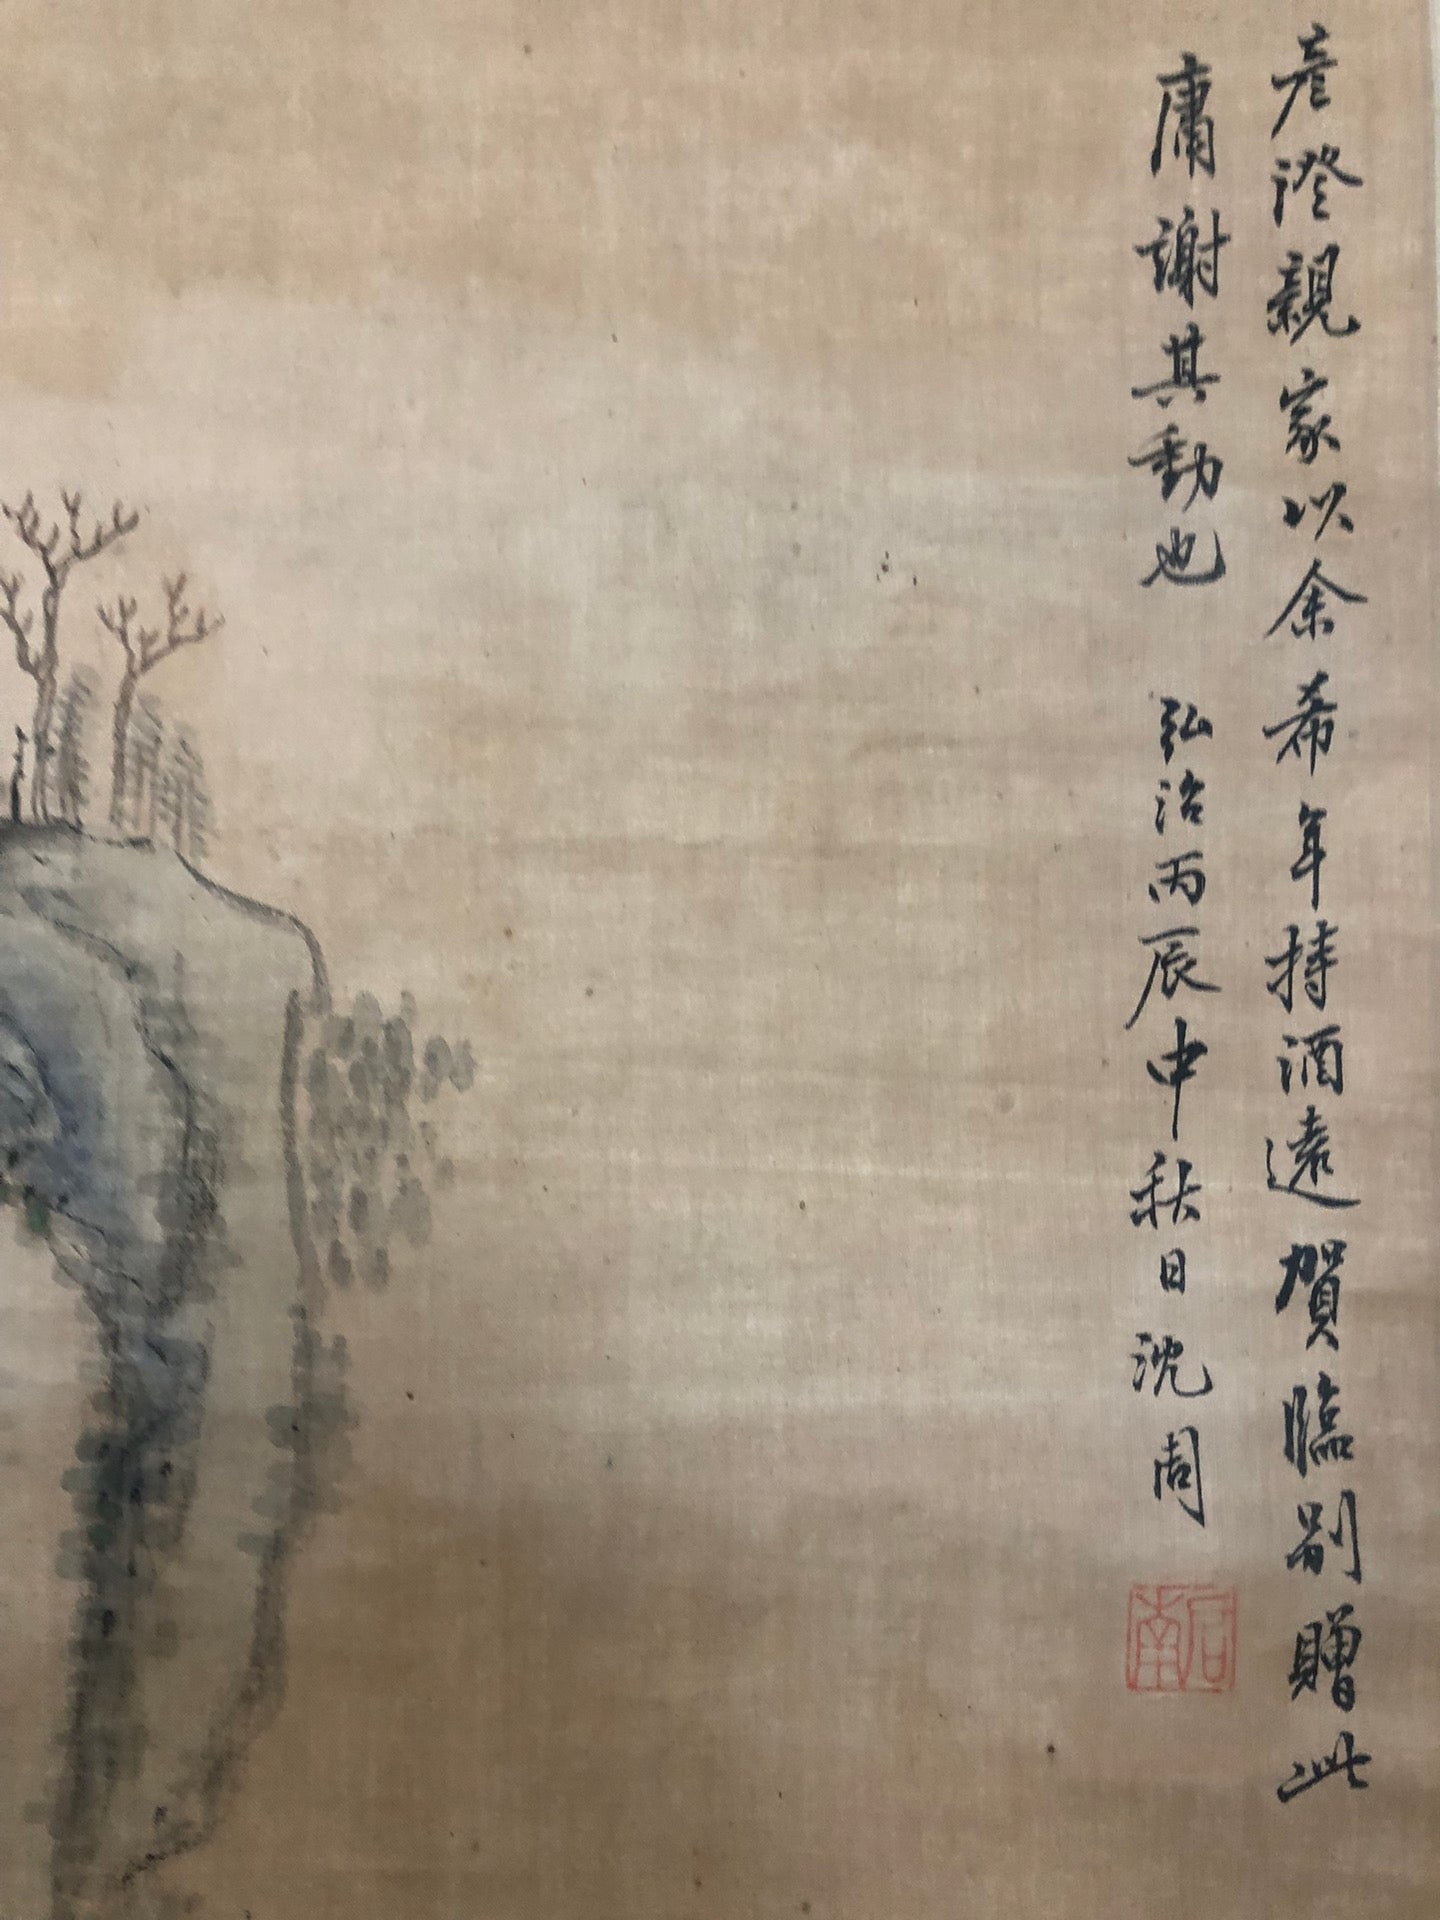 彦澄親家以余希年持酒遠賀臨別贈此
庸謝其動也 弘治丙辰中秋日沈周
石田